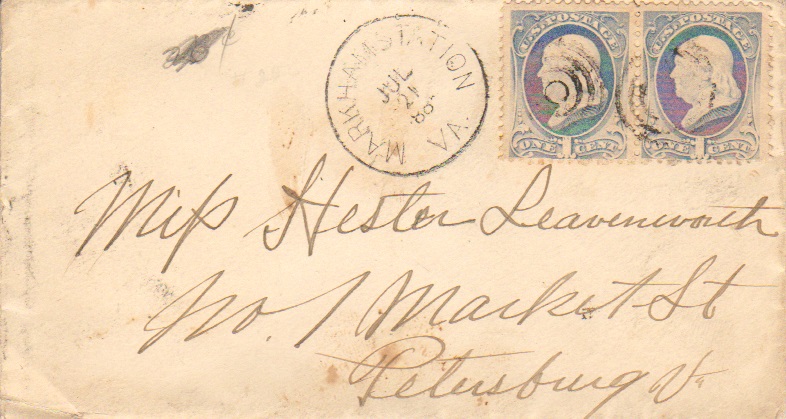 MARKHAM STATION
JUL
24
VA.
U.S. POSTAGE
U.S. POSTAGE
ONE 1 CENT
ONE 1 CENT
Miss Hester Leavenworth
No. 1 Market St
Petersburg Va